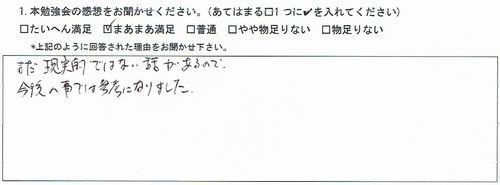 1. 本勉強会の感想をお聞かせください。（あてはまる□1つに✔を入れてください）
□たいへん満足 ☑まあまあ満足 □普通 □やや物足りない □物足りない
*上記のように回答された理由をお聞かせ下さい。
まだ現実的ではない話があるので、
今後の事では参考になりました。